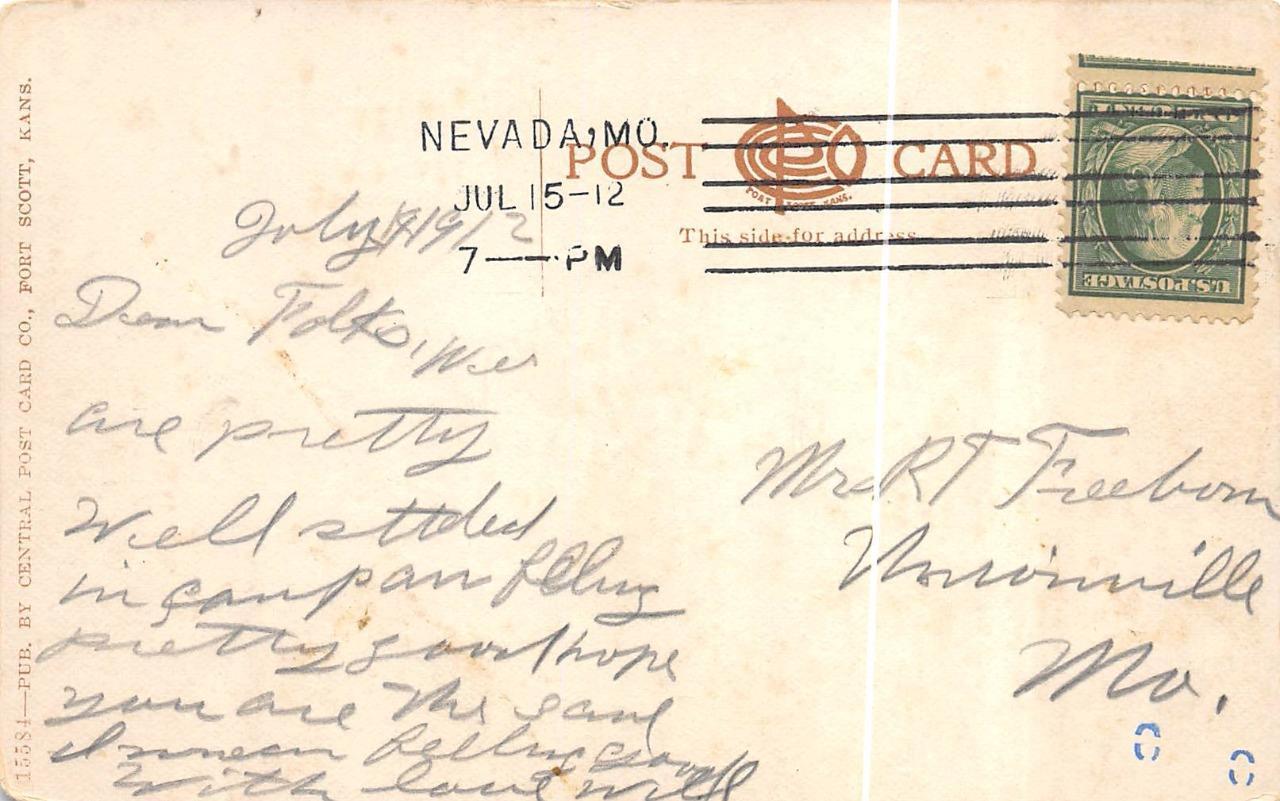 NEVADA, MO.
JUL 15-12
7 — PM
POST CARD
FORT SCOTT, KANS.
This side for address
U.S. POSTAGE
July 1912
Dear Folks, We
are pretty
Well sttled
in camp an felling
pretty good hope
you are the same
I mean felling good
With love Will
Mr R T Freeborn
Unionville
Mo.
15584—PUB. BY CENTRAL POST CARD CO., FORT SCOTT, KANS.